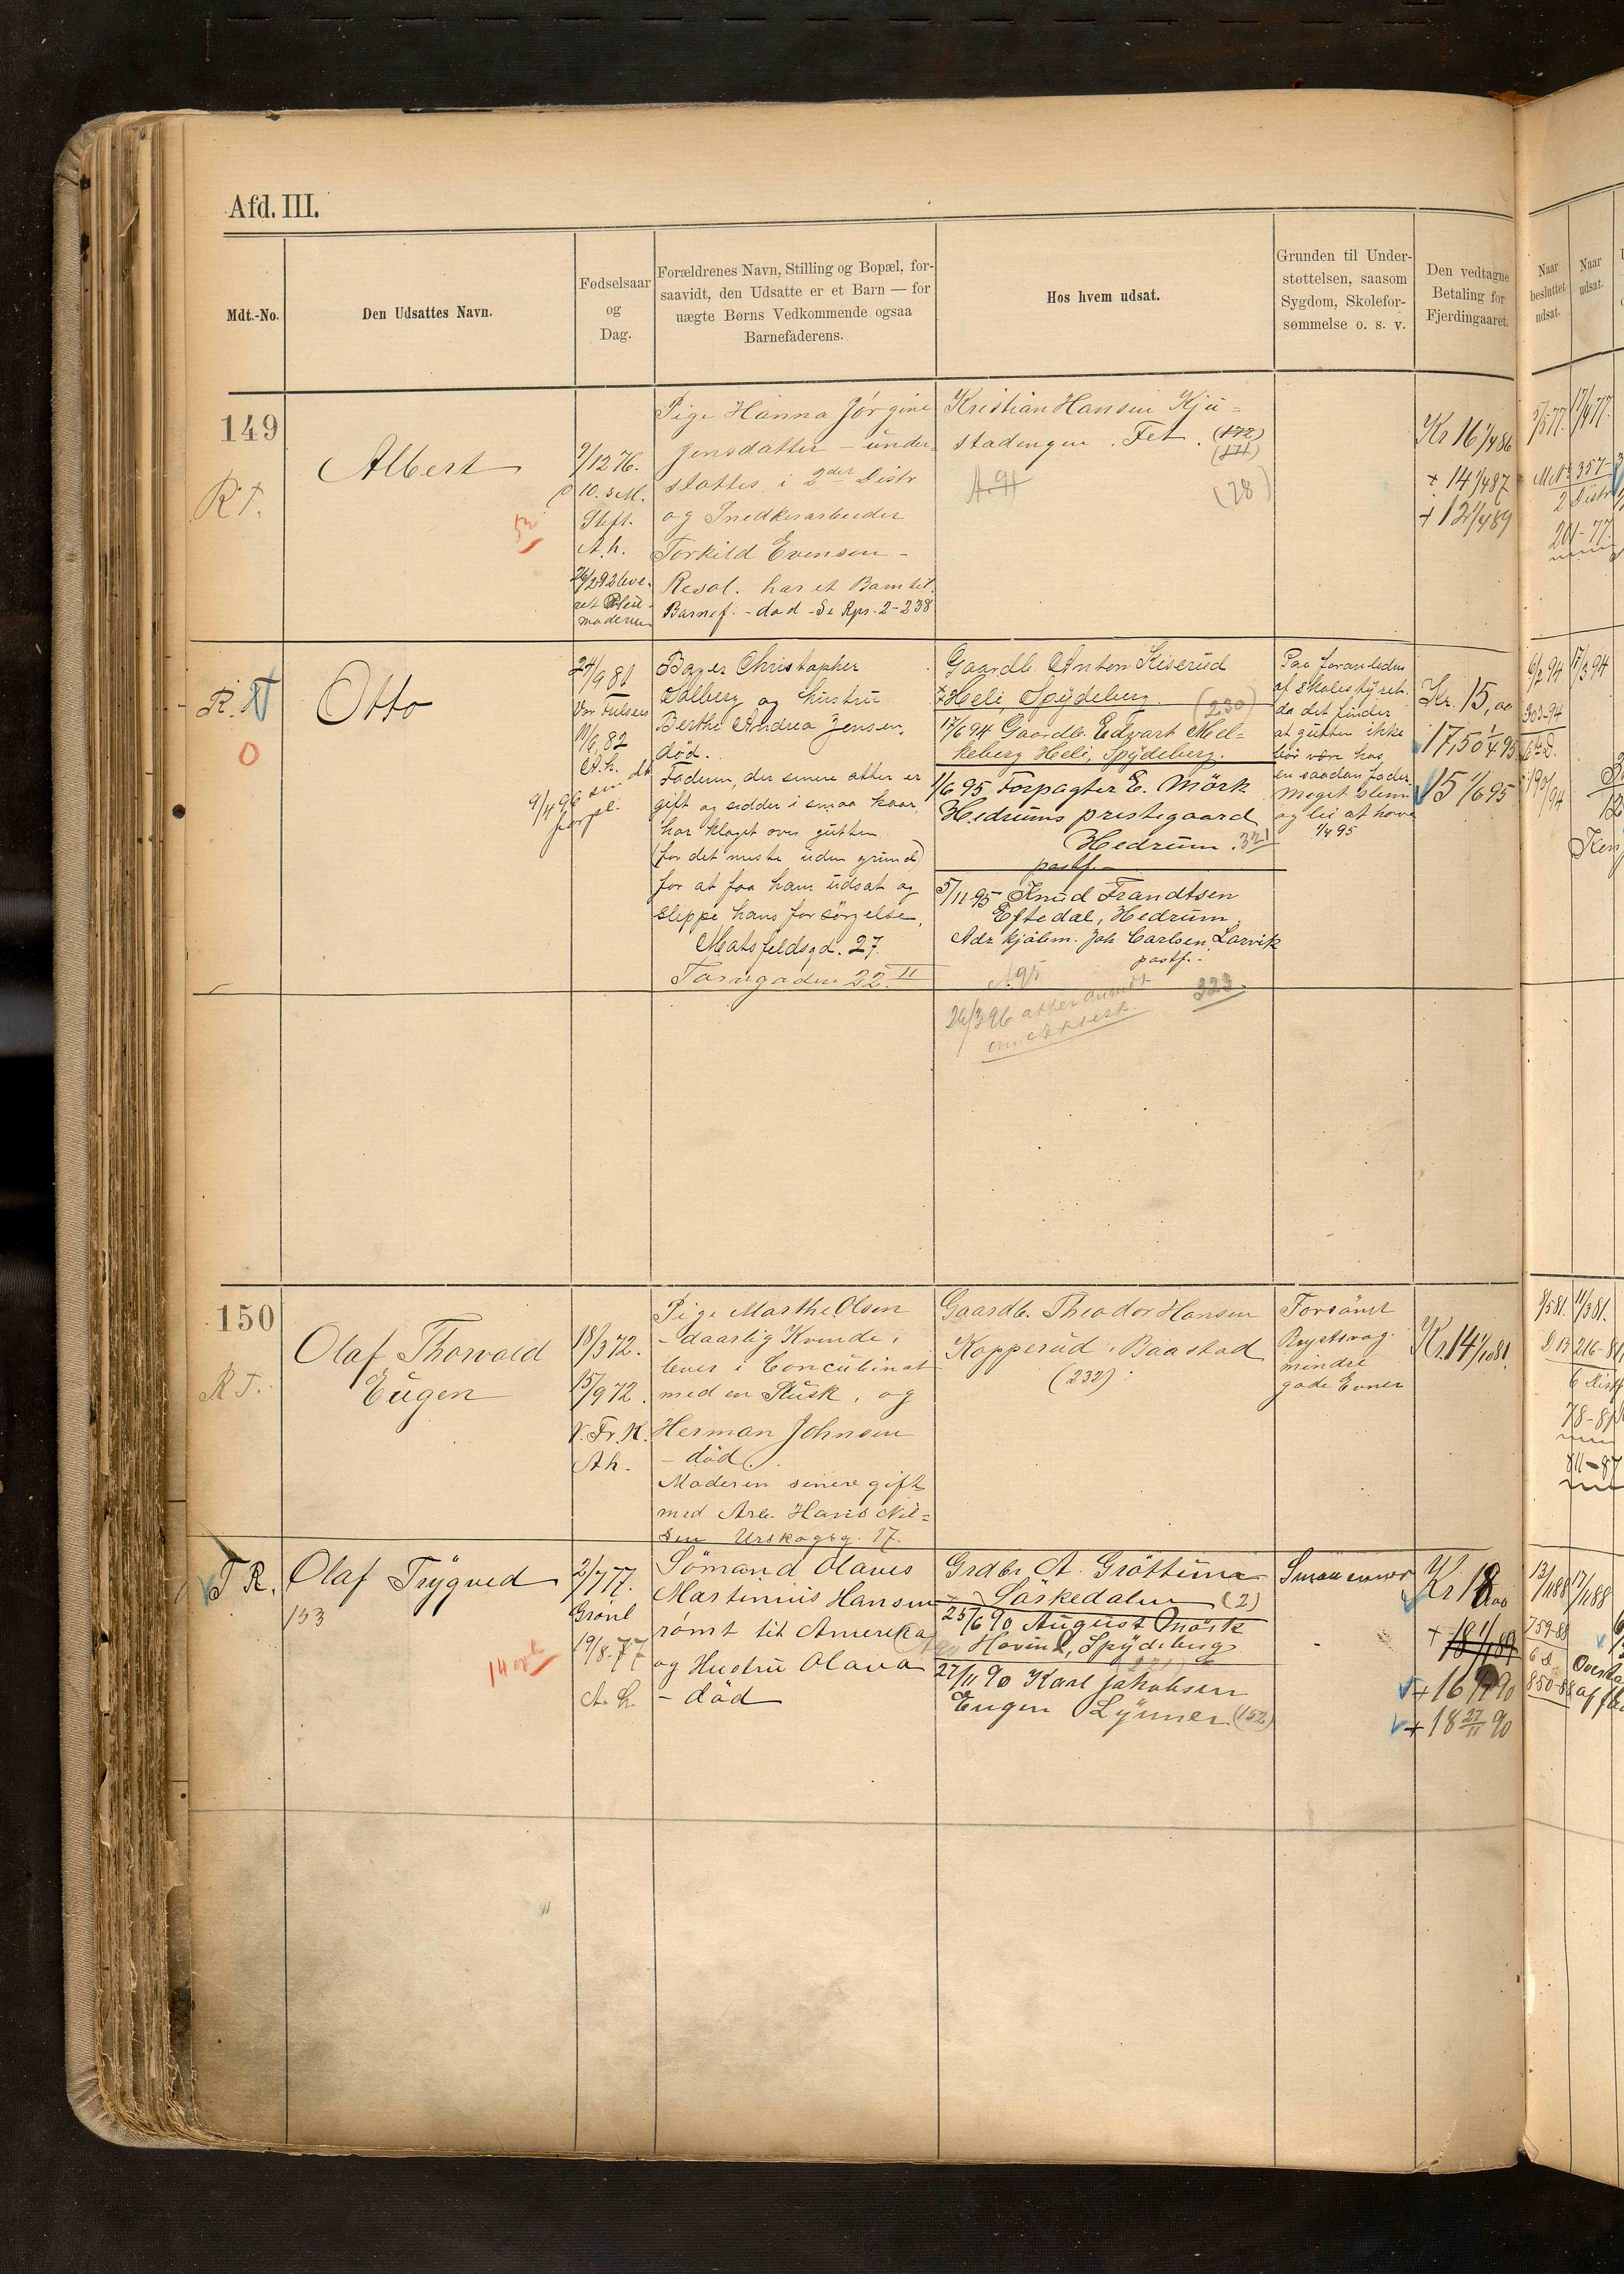 Afd. III.
Mdt.-No.
Den Udsattes Navn.
Fødselsaar
og
Dag.
Forældrenes Navn, Stilling og Bopæl, for-
saavidt, den Udsatte er et Barn — for
uægte Børns Vedkommende ogsaa
Barnefaderens.
Hos hvem udsat.
Grunden til Under-
støttelsen, saasom
Sygdom, Skolefor-
sømmelse o. s. v.
Den vedtagne
Betaling for
Fjerdingaaret.
Naar
besluttet
udsat.
Naar
udsat.
149
R.T.
Albert
9/12 76.
10. s. M.
Stift.
A. h.
26/2 92 leve-
ret Pleie
moderen
Pige Hanna Jørgine
Jensdatter – under-
støttes i 2det Distr
og Snedkerarbeider
Torkild Evensen –
Resol. har et Barn til.
Barnef. – död – Se Rpr. 2-238
Kristian Hansen Kju-
stadengen. Fet. (172)
(171)
A. 91
(78)
Kr 16 1/4 86
+ 14 1/4 87
+ 12 1/4 89
9/5 77.
17/4 77.
357-
2 Distr
201-77
R.T
O
Otto
24/9 81
Vor Frelsers
11/6 82
A. h.
9/4 96
Bager Christopher
Dalberg og hustru
Berthe Andrea Jensen,
död.
Faderen, der senere atter er
gift og sidder i smaa kaar,
har klaget over gutten
(for det meste uden grund)
for at faa ham udsat og
slippe hans forsörgelse.
Matsfeldsgd. 27.
Tarngaden 22 II
Gaardb. Anton Kiserud
Heli Spydeberg.
(230)
17/6 94 Gaardb. Edvart Mel-
leberg Heli, Spydeberg.
1/6 95 Forpagter E. Mörk
Hedrums prestegaard
Hedrum. 321
postf.
5/11 95 Knud Frandtsen
Eftedal, Hedrum.
Adr kjölem. Joh Carlsen, Larvik
postf.
A 95
26/3 96 atter anmodt
om Attest
323.
Paa foranledn
af Skolestyret.
da det finder
at gutten ikke
bör være hos
en saadan fader
Meget slem
og lei at have
1/4 95
Kr. 15,00
17,50 1/4 95
15 1/6 95
6/3 94
17/3 94
303-94
190/94
150
R T.
Olaf Thorvald
Eugen
18/3 72.
15/9 72.
V. Fr. K.
A h.
Pige Marthe Olsen
– daarlig Kvinde,
lever i Concubinat
med en Slusk, og
Herman Johnsen
– död.
Moderen senere gift
med Arb. Hans Niel-
sen Urskogsg. 17.
Gaardb. Theodor Hansen
Kopperud. Baastad
(232)
Forsömt
Brystsvag.
mindre
gode Evner
Kr. 14 1/10 81
9/5 81.
11/5 81.
216-81
6 Distr
78-81
811-87
T R.
Olaf Trygved
153
2/7 77.
Grönl
19/8. 77
A. h.
Sömand Olaves
Martinius Hansen
römt til Amerika
og Hustru Olava
– död
Grdbr A. Gröttum
Sörkedalen (2)
25/6 90 August Mörk
Hovind, Spydeberg
27/11 90 Karl Jakobsen
Eugen Lynner (152)
Smaa evner
Kr 18,00
+ 18 1/1 89
+ 16 90
+ 18 27/11 90
13/11 88
17/11 88
759-88
6 d
850-88